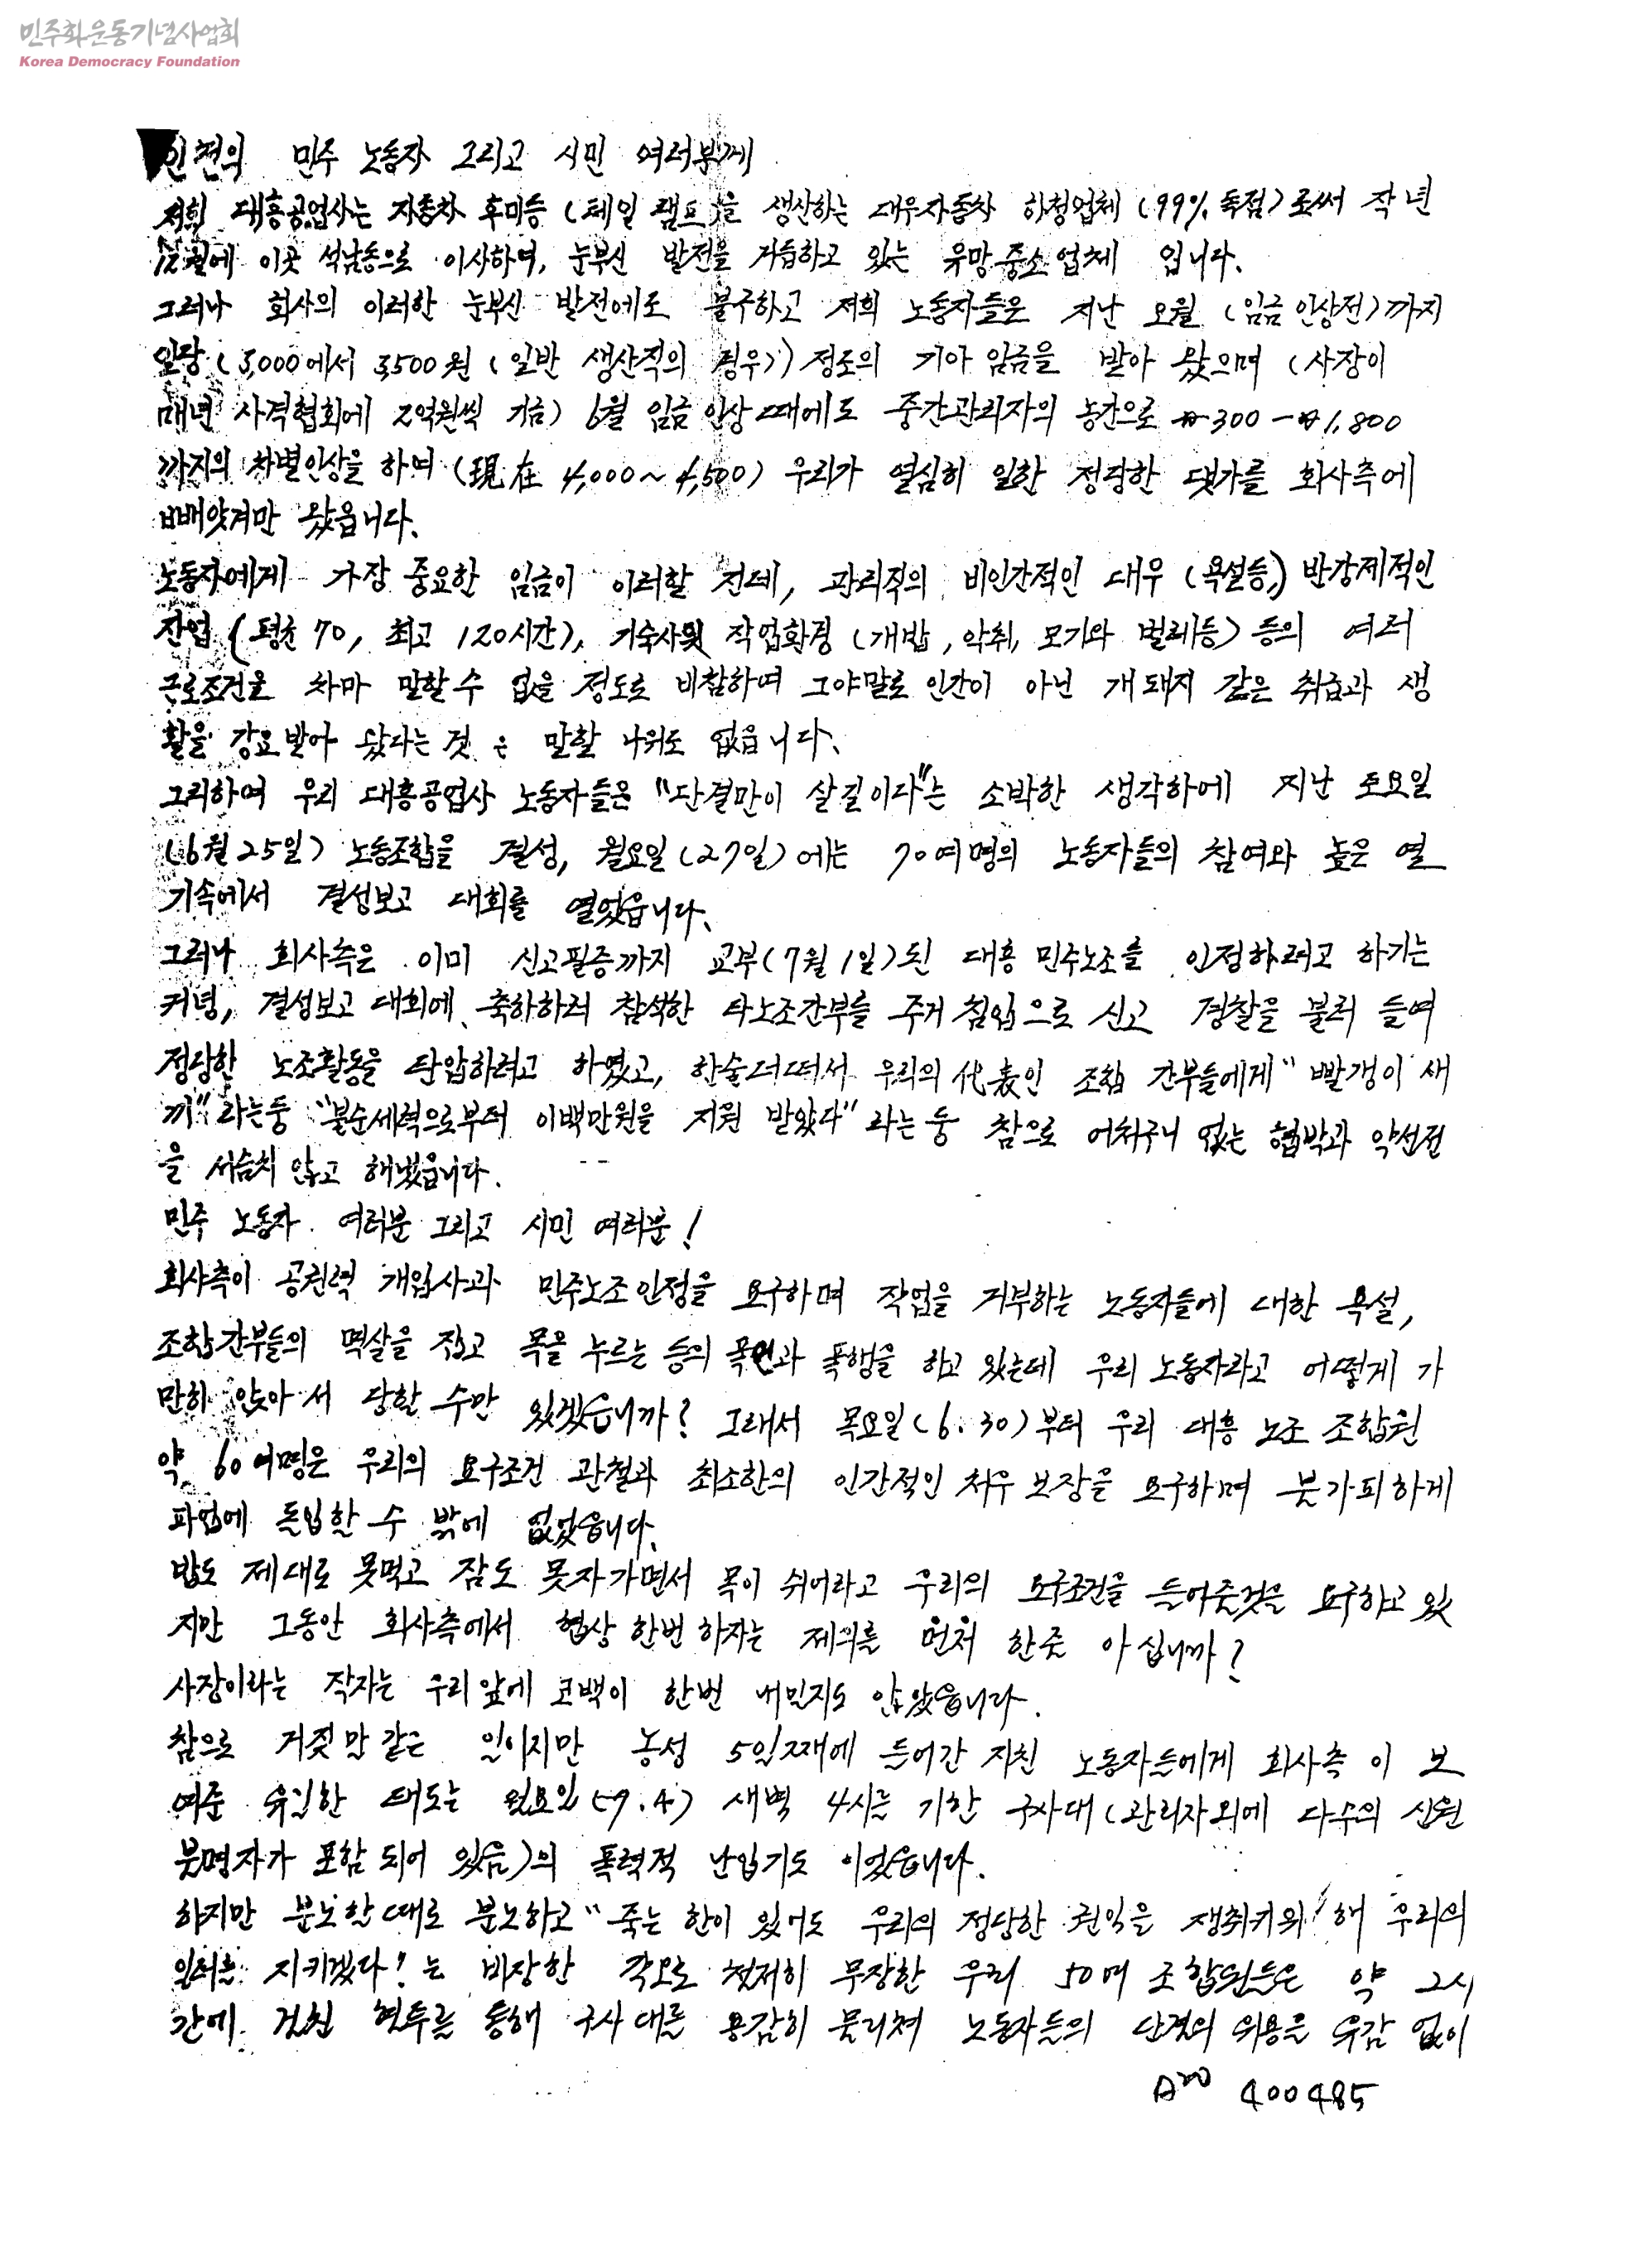 민주화운동기념사업회
Korea Democracy Foundation
인천의 민주 노동자 그리고 시민 여러분께
저희 대흥공업사는 자동차 후미등 (테일 램프)을 생산하는 대우자동차 하청업체 (99% 독점)로써 작년
12월에 이곳 석남동으로 이사하여, 눈부신 발전을 거듭하고 있는 유망중소업체 입니다.
그러나 회사의 이러한 눈부신 발전에도 불구하고 저희 노동자들은 지난 오월 (임금 인상전)까지
일당 (3,000에서 3,500원 (일반 생산직의 경우)) 정도의 기아 임금을 받아 왔으며 (사장이
매년 사격협회에 2억원씩 기금) 6월 임금 인상 때에도 중간관리자의 농간으로 ₩300 - ₩1,800
까지의 차별인상을 하여 (現在 4,000~4,500) 우리가 열심히 일한 정당한 댓가를 회사측에
빼앗겨만 왔읍니다.
노동자에게 가장 중요한 임금이 이러할 진데, 관리직의 비인간적인 대우 (욕설등,) 반강제적인
잔업 (평균 70, 최고 120시간), 기숙사및 작업환경 (개밥, 악취, 모기와 벌레등) 등의 여러
근로조건을 차마 말할수 없을 정도로 비참하여 그야말로 인간이 아닌 개 돼지 같은 취급과 생
활을 강요받아 왔다는 것은 말할 나위도 없읍니다.
그리하여 우리 대흥공업사 노동자들은 "단결만이 살길이다"는 소박한 생각하에 지난 토요일
(6월 25일) 노동조합을 결성, 월요일(27일)에는 70여명의 노동자들의 참여와 높은 열
기속에서 결성보고 대회를 열었읍니다.
그러나 회사측은 이미 신고필증까지 교부(7월 1일)된 대흥 민주노조를 인정하려고 하기는
커녕, 결성보고 대회에 축하하러 참석한 타노조간부를 주거 침입으로 신고 경찰을 불러 들여
정당한 노조활동을 탄압하려고 하였고, 한술더떠서 우리의 代表인 조합 간부들에게 "빨갱이 새
끼"라는둥 "불순세력으로부터 이백만원을 지원 받았다"라는 둥 참으로 어처구니 없는 협박과 악선전
을 서슴치 않고 해냈읍니다.
민주 노동자 여러분 그리고 시민 여러분!
회사측이 공권력 개입사과 민주노조인정을 요구하며 작업을 거부하는 노동자들에 대한 욕설,
조합간부들의 멱살을 잡고 목을 누르는 등의 폭언과 폭행을 하고 있는데 우리 노동자라고 어떻게 가
만히 앉아서 당할 수만 있겠읍니까? 그래서 목요일(6.30)부터 우리 대흥 노조 조합원
약 60여명은 우리의 요구조건 관철과 최소한의 인간적인 처우 보장을 요구하며 붓가피하게
파업에 돌입할 수 밖에 없었읍니다.
밥도 제대로 못먹고 잠도 못자가면서 목이 쉬어라고 우리의 요구조건을 들어줄것을 요구하고 있
지만 그동안 회사측에서 협상 한번 하자는 제의를 먼저 한줏 아십니까?
사장이라는 작자는 우리앞에 코빽이 한번 내민지도 않았읍니다.
참으로 거짓말 같은 일이지만 농성 5일째에 들어간 지친 노동자들에게 회사측 이 보
여준 유일한 태도는 월요일(7.4) 새벽 4시를 기한 구사대(관리자외에 다수의 신원
붓명자가 포함 되어 있음)의 폭력적 난입기도 이었읍니다.
하지만 분노할때로 분노하고 "죽는 한이 있어도 우리의 정당한 권익을 쟁취키위해 우리의
일터를 지키겠다!는 비장한 각오로 철저히 무장한 우리 50여 조합원들은 약 2시
간에 걸친 혈투를 통해 구사대를 용감히 물리쳐 노동자들의 단결의 위용을 유감 없이
A20 400485